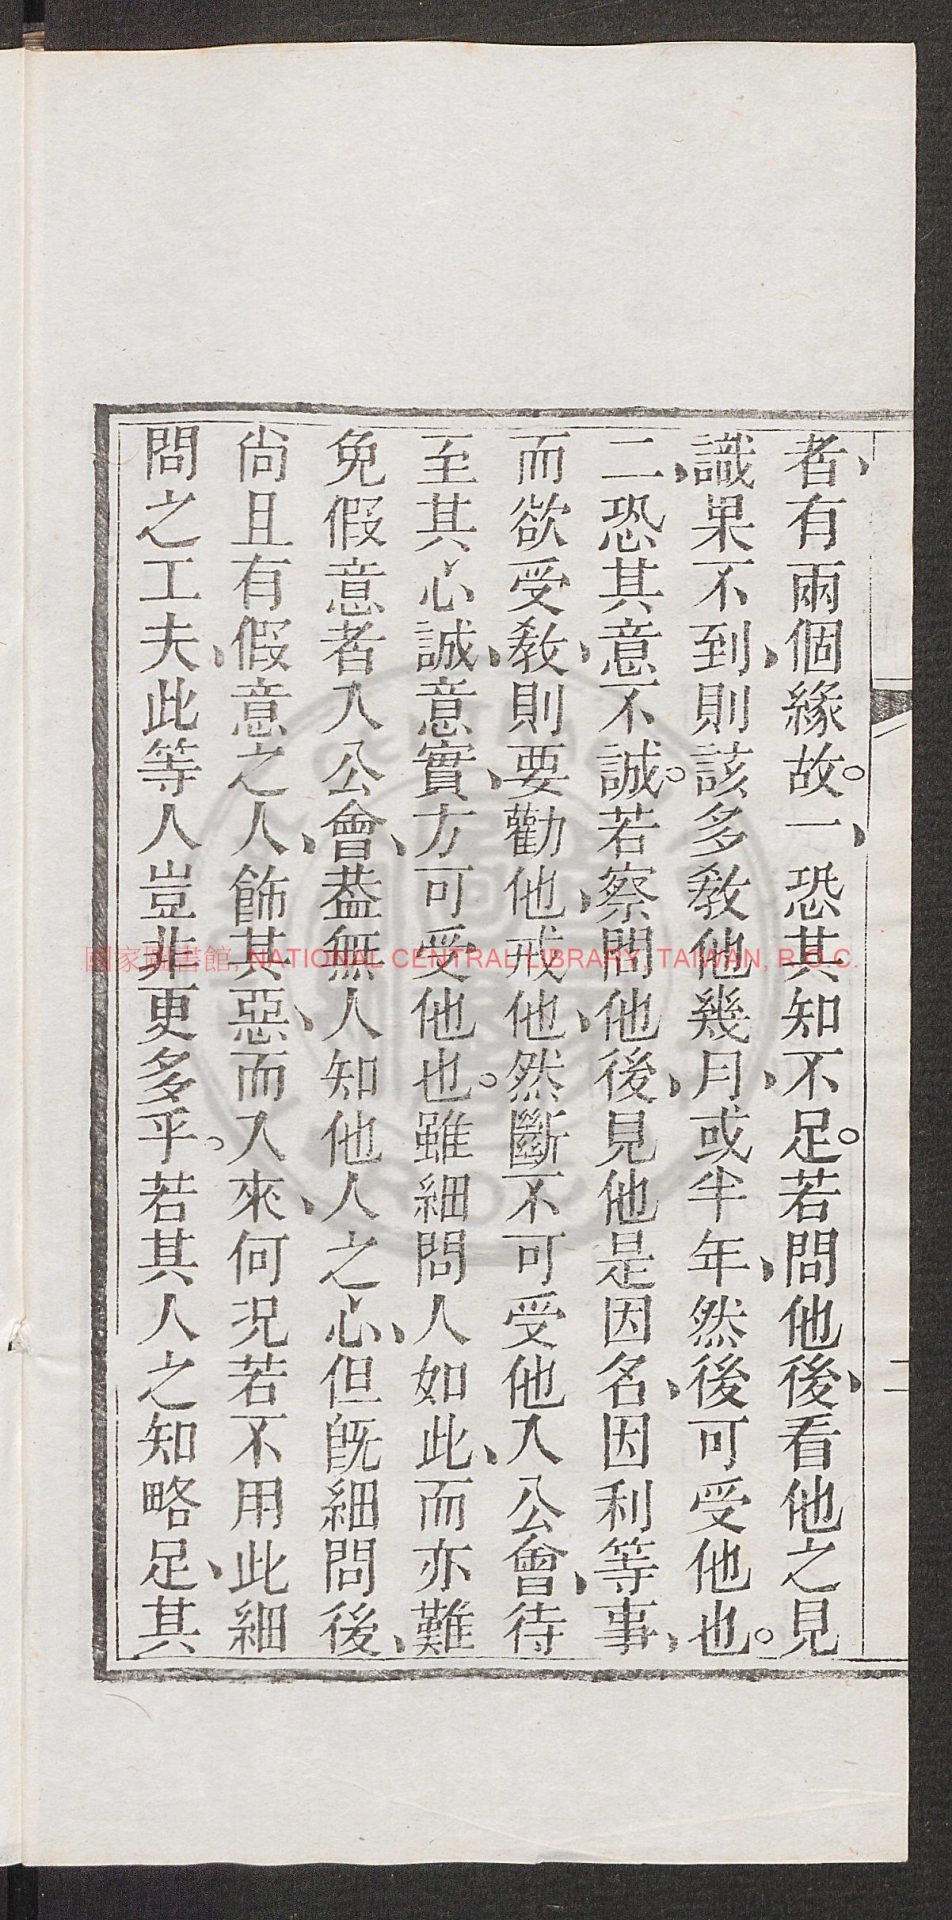 者、有兩個緣故。一、恐其知不足。若問他後、看他之見
識果不到、則該多教他幾月、或半年、然後可受他也。
二、恐其意不誠。若察問他後、見他是因名、因利等事、
而欲受教、則要勸他、戒他、然斷不可受他入公會、待
至其心誠、意實、方可受他也。雖細問人如此、而亦難
免假意者入公會、葢無人知他人之心、但旣細問後、
尙且有假意之人、飾其惡、而入來、何况若不用此細
問之工夫、此等人豈非更多乎。若其人之知略足、其
二
國家圖書館, NATIONAL CENTRAL LIBRARY, TAIWAN, R.O.C.